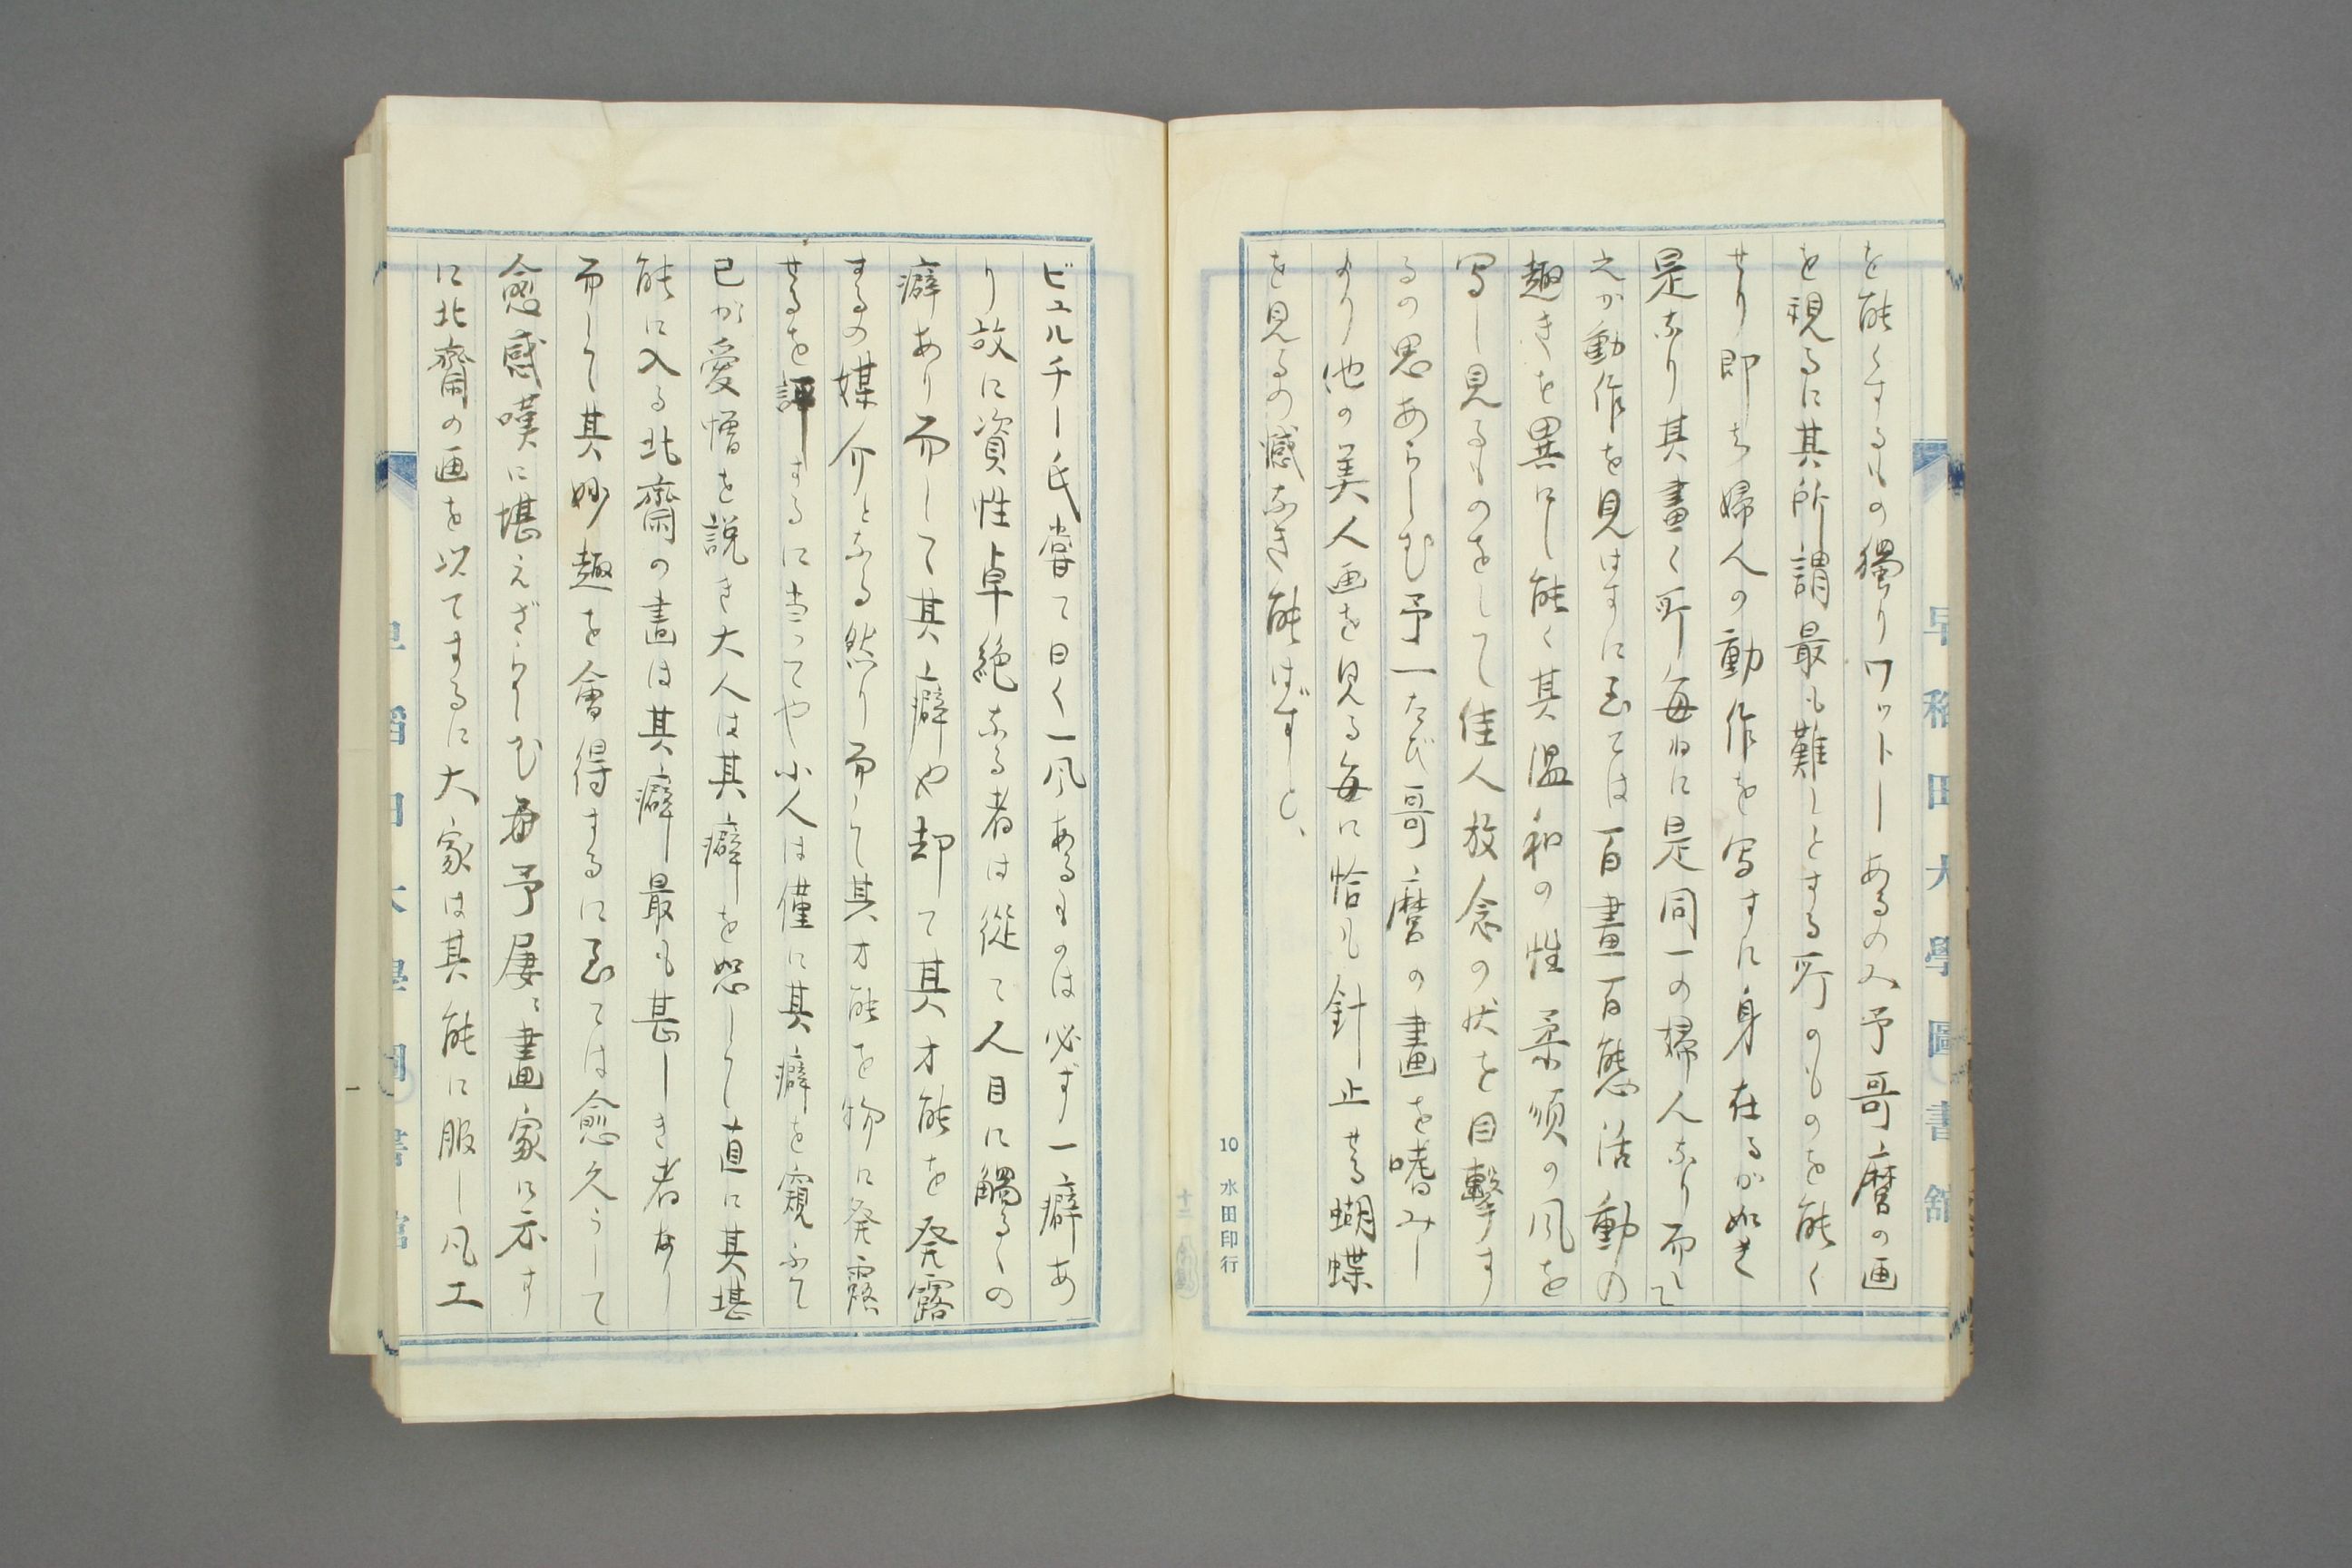 を能くするもの獨りワットーあるのみ予哥麿の画
を視るに其所謂最も難しとする所のものを能く
せり即ち婦人の動作を写すに身在るが如き
是なり其畫く所毎ねに是同一の婦人なり而して
之が動作を見はすに至ては百畫百態活動の
趣きを異にし能く其温和の性柔順の風を
写し見るものをして佳人放念の状を目撃す
るの思あらしむ予一たび哥麿の畫を嗜みし
より他の美人画を見る毎に恰も針止せる蝴蝶
を見るの感なき能はずと、
10 水田印行
ビュルチー氏嘗て曰く一風あるものは必ず一癖あ
り故に資性卓絶なる者は従て人目に觸るゝの
癖あり而して其癖や却て其才能を発露
するの媒介となる然り而して其才能を物に発露
せるを評するに当つてや小人は僅に其癖を窺ふて
己が愛憎を説き大人は其癖を恕して直に其堪
能に入る北齋の畫は其癖最も甚しき者あり
而して其妙趣を會得するに至ては愈久うして
愈感嘆に堪えざらしむ予屢〻畫家に示す
に北齋の画を以てするに大家は其能に服し凡工
早稲田大學圖書舘